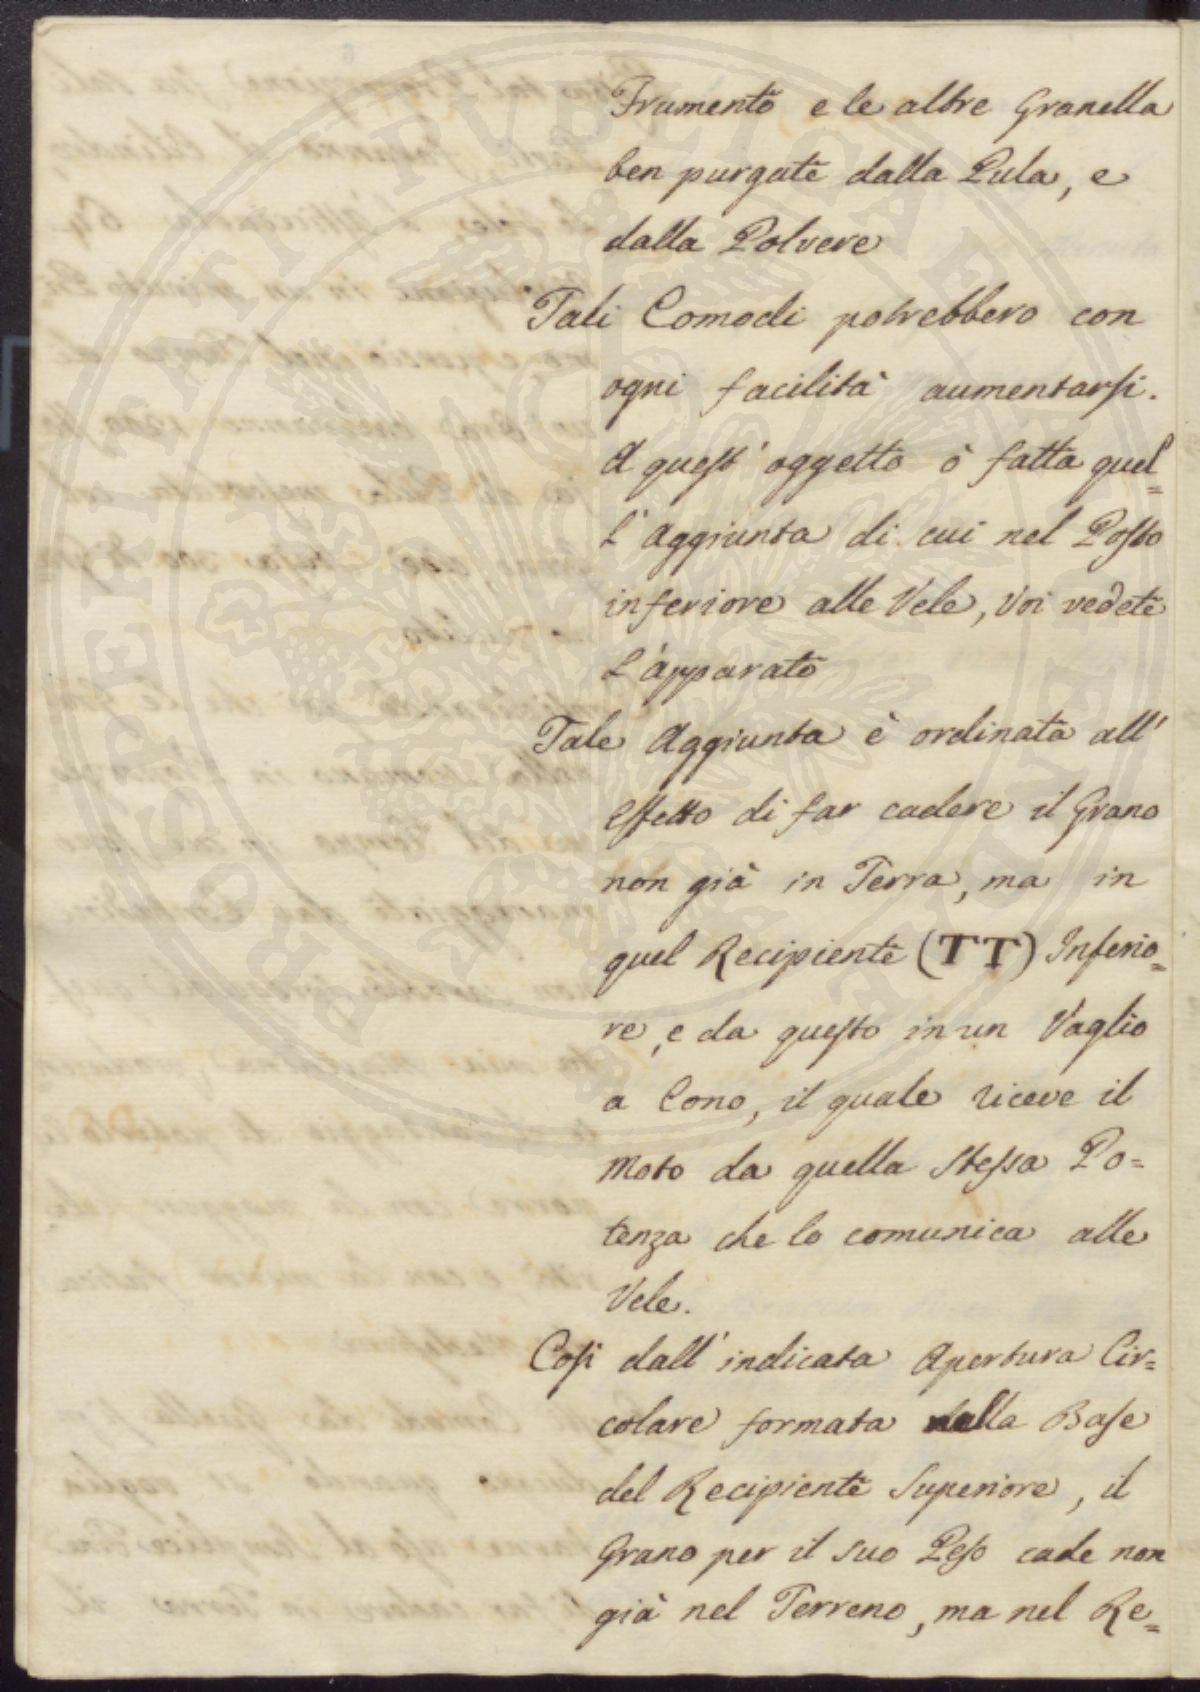 Frumento e le altre Granella
ben purgate dalla Pula, e
dalla Polvere
Tali Comodi potrebbero con
ogni facilità aumentarsi.
A quest' oggetto è fatta quel=
l' Aggiunta di cui nel Posto
inferiore alle Vele, Voi vedete
l'apparato
Tale Aggiunta è ordinata all'
effetto di far cadere il Grano
non già in Terra, ma in
quel Recipiente (TT) Inferio=
re, e da questo in un Vaglio
a Cono, il quale riceve il
Moto da quella stessa Po=
tenza che lo comunica alle
Vele.
Così dall' indicata Apertura Cir=
colare formata nella Base
del Recipiente Superiore, il
Grano per il suo Peso cade non
già nel Terreno, ma nel Re=
PROSPERITATI PVBLICAE AVGENDAE